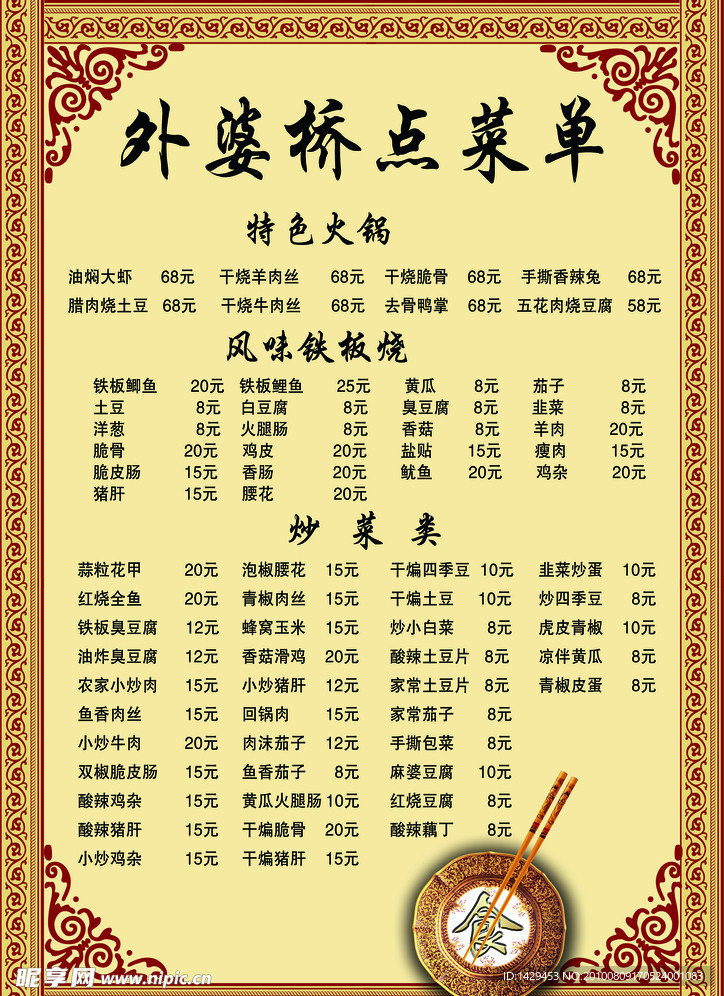 外婆桥点菜单
特色火锅
油焖大虾 68元 干烧羊肉丝 68元 干烧脆骨 68元 手撕香辣兔 68元
腊肉烧土豆 68元 干烧牛肉丝 68元 去骨鸭掌 68元 五花肉烧豆腐 58元
风味铁板烧
铁板鲫鱼 20元 铁板鲤鱼 25元 黄瓜 8元 茄子 8元
土豆 8元 白豆腐 8元 臭豆腐 8元 韭菜 8元
洋葱 8元 火腿肠 8元 香菇 8元 羊肉 20元
脆骨 20元 鸡皮 20元 盐贴 15元 瘦肉 15元
脆皮肠 15元 香肠 20元 鱿鱼 20元 鸡杂 20元
猪肝 15元 腰花 20元
炒菜类
蒜粒花甲 20元 泡椒腰花 15元 干煸四季豆 10元 韭菜炒蛋 10元
红烧全鱼 20元 青椒肉丝 15元 干煸土豆 10元 炒四季豆 8元
铁板臭豆腐 12元 蜂窝玉米 15元 炒小白菜 8元 虎皮青椒 10元
油炸臭豆腐 12元 香菇滑鸡 20元 酸辣土豆片 8元 凉伴黄瓜 8元
农家小炒肉 15元 小炒猪肝 12元 家常土豆片 8元 青椒皮蛋 8元
鱼香肉丝 15元 回锅肉 15元 家常茄子 8元
小炒牛肉 20元 肉沫茄子 12元 手撕包菜 8元
双椒脆皮肠 15元 鱼香茄子 8元 麻婆豆腐 10元
酸辣鸡杂 15元 黄瓜火腿肠 10元 红烧豆腐 8元
酸辣猪肝 15元 干煸脆骨 20元 酸辣藕丁 8元
小炒鸡杂 15元 干煸猪肝 15元
食
昵享网 www.nipic.cn
ID:1429453 NO:20100809170524001083